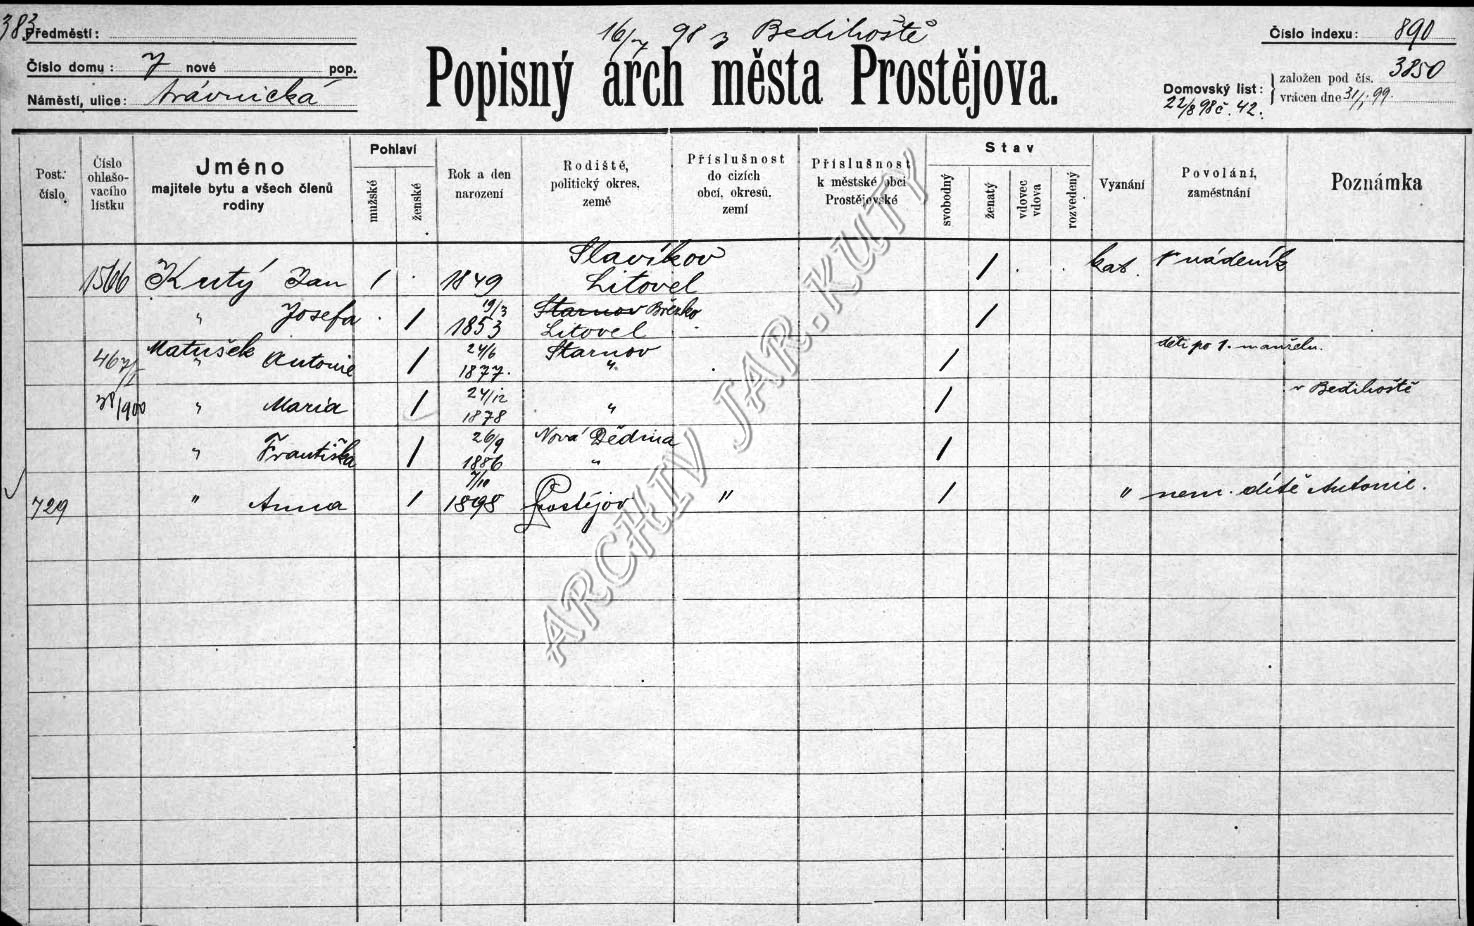 383
16/7 98 z Bedihoště
Předměstí:
Číslo domu: 7 nové pop.
Náměstí, ulice: trávnická
Popisný arch města Prostějova.
Číslo indexu: 890
Domovský list: založen pod čís. 3850
22/8 98 č. 42. vrácen dne 31/1 99.
Post. číslo.
Číslo ohlašovacího lístku
Jméno
majitele bytu a všech členů rodiny
Pohlaví
mužské
ženské
Rok a den narození
Rodiště, politický okres, země
Příslušnost do cizích obcí, okresů, zemí
Příslušnost k městské obci Prostějovské
Stav
svobodný
ženatý
vdovec vdova
rozvedený
Vyznání
Povolání, zaměstnání
Poznámka
1566 Kutý Jan / 1849 Slavíkov Litovel / kat. nádeník
" Josefa / 19/3 1853 Starnov Březko Litovel /
467/1 Matušek " Antonie / 24/6 1877. Starnov " / děti po 1. manželu.
/900 " Maria / 24/12 1878 " / v Bedihoště
" Františka / 26/9 1886 Nová Dědina " /
729 " Anna / 7/10 1898 Prostějov " / " nem. dítě Antonie.
ARCHIV JAR. KUTÝ